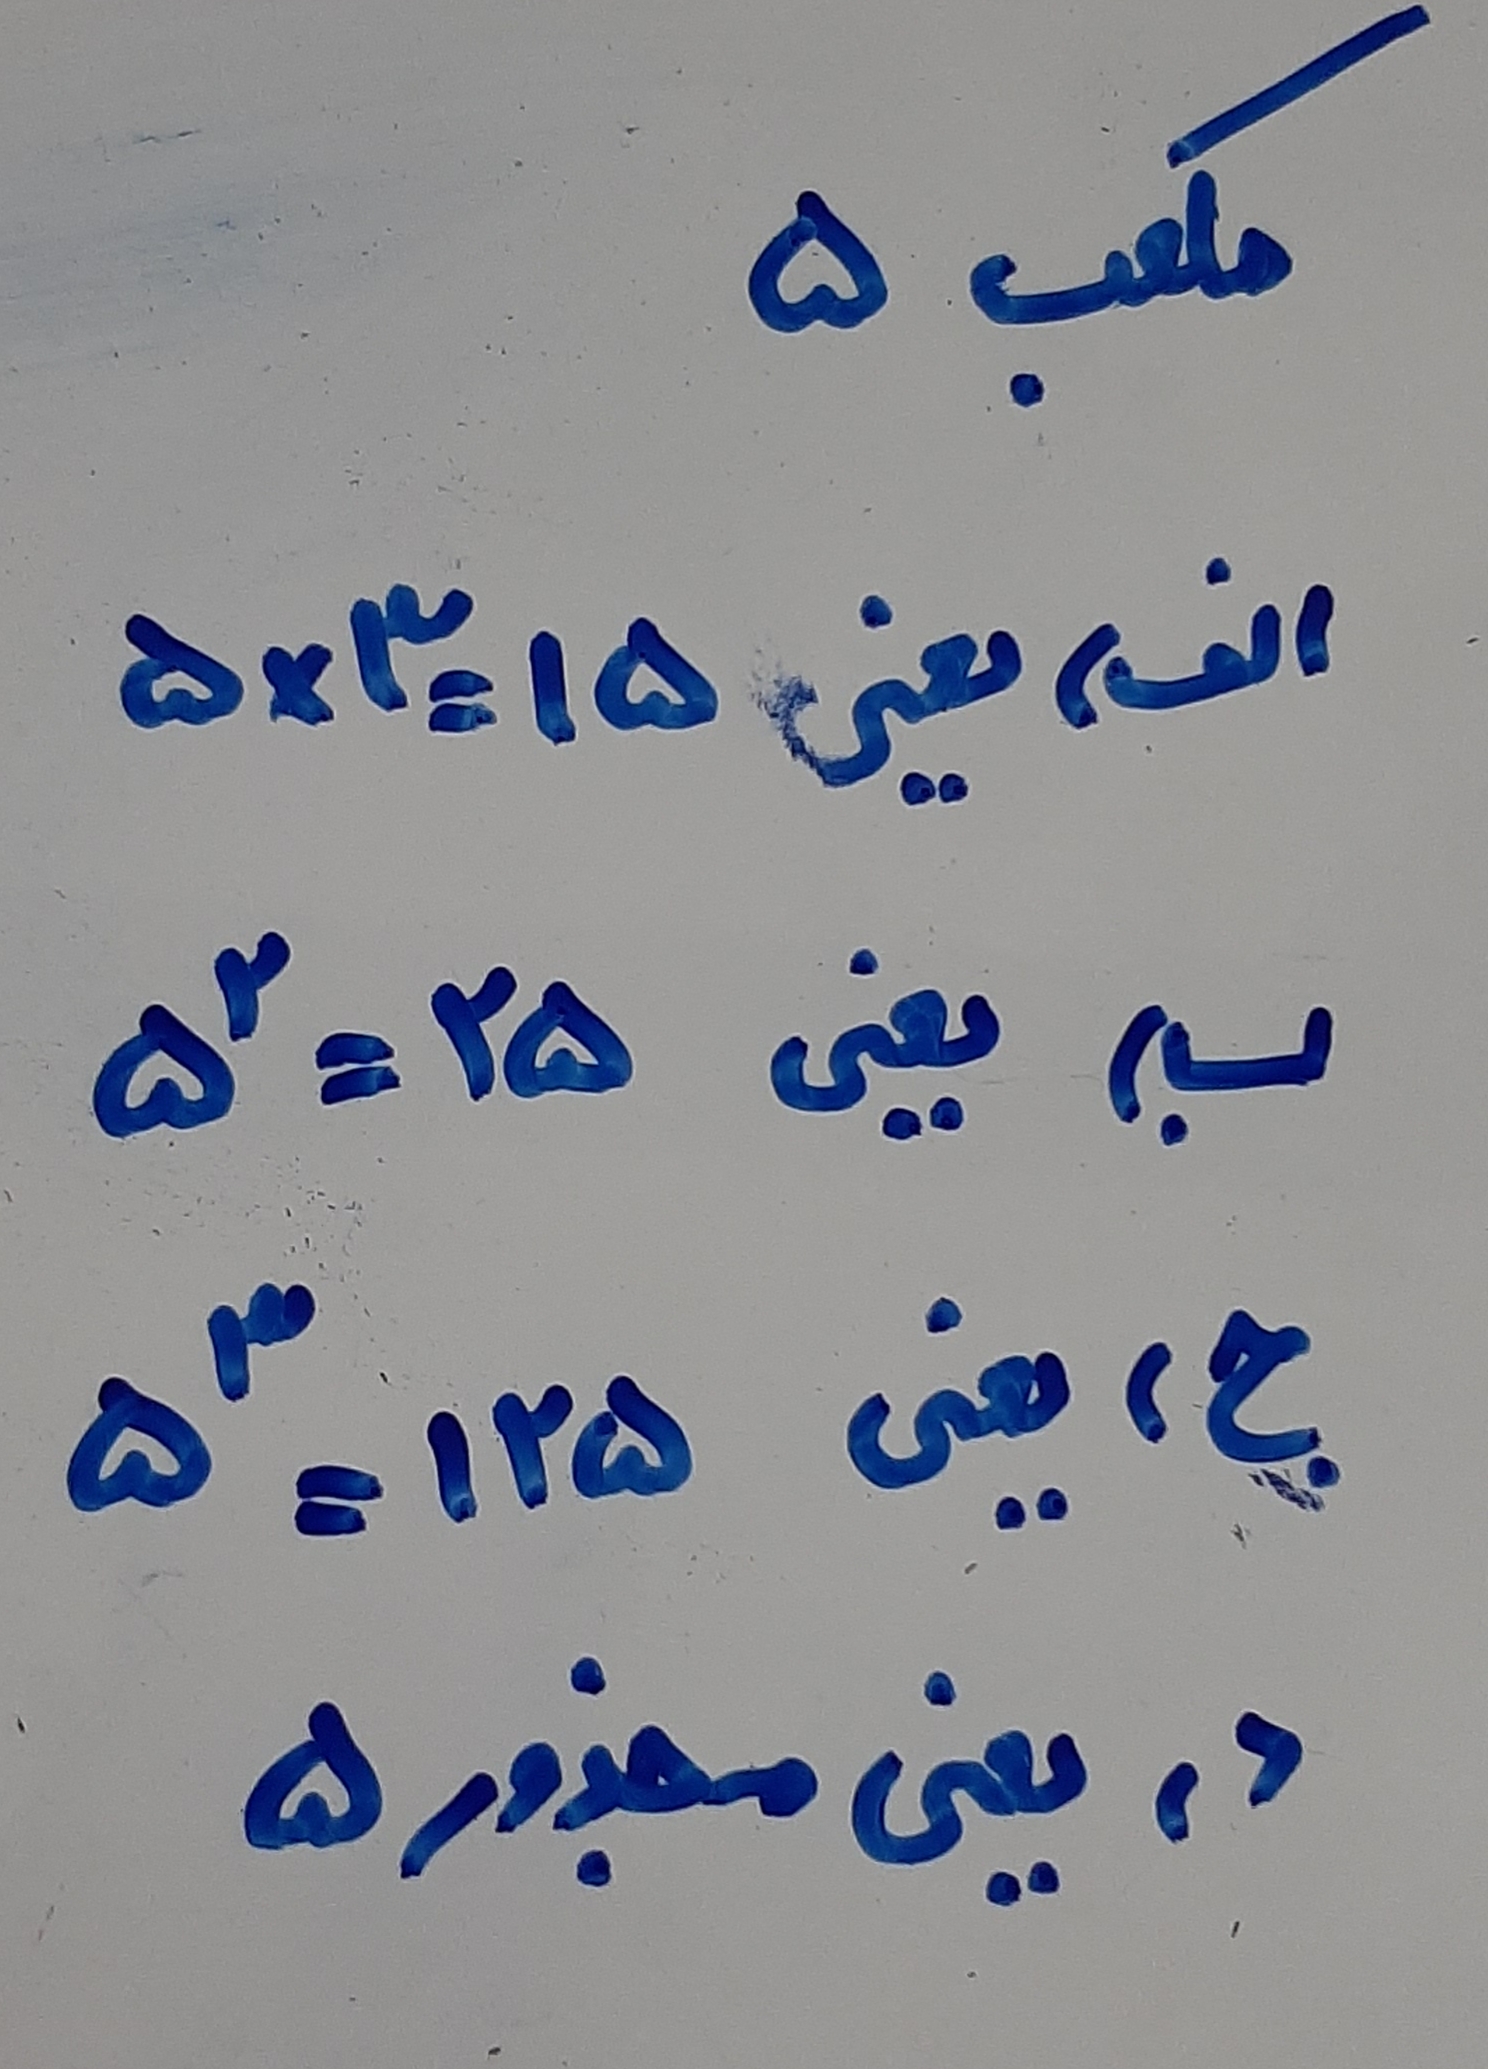 مکعب ۵
الف، یعنی ۵×۳=۱۵
ب، یعنی ۵^۲ = ۲۵
ج، یعنی ۵^۳ = ۱۲۵
د، یعنی مجذور ۵